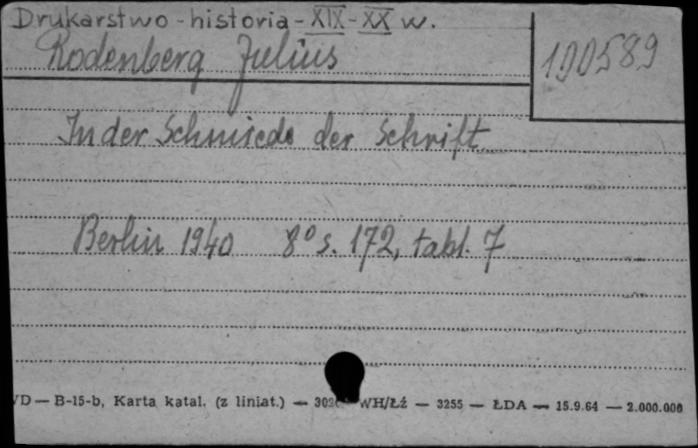 Drukarstwo - historia - XIX - XX w.
Rodenberg Julius
190589
In der Schmiede der Schrift
Berlin 1940 8° s. 172, tabl. 7
VD — B-15-b, Karta katal. (z liniat.) — WH/Łź — 3255 — ŁDA — 15.9.64 — 2.000.000